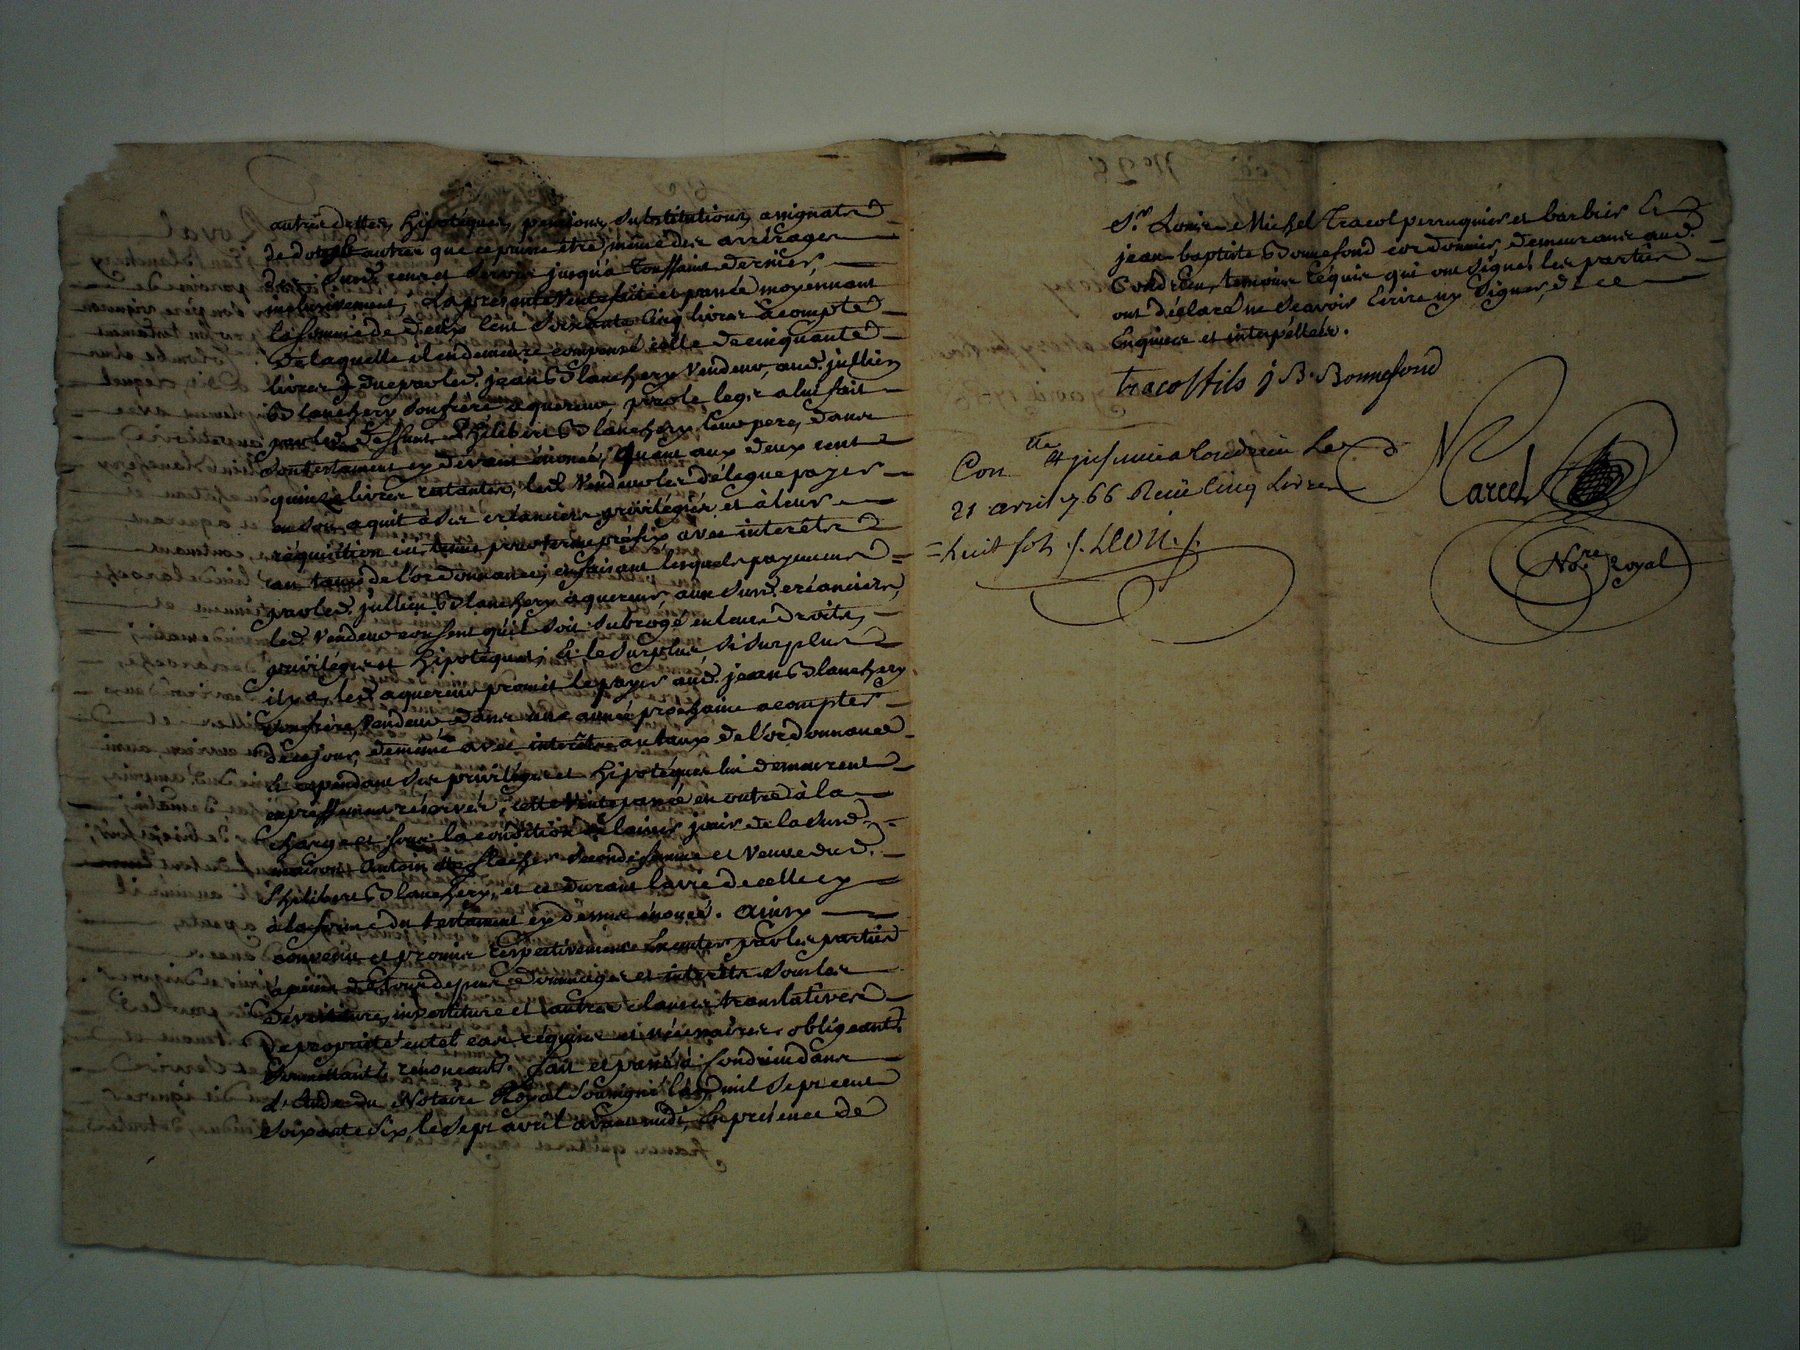 autres dettes, hipotéques, pensions, substitutions, assignats
de dot et autres que ce puisse être, même des arrérages
cens et servis jusqu'à Toussaint dernier,
inclusivement; La présente vente faite et passée moyennant
la somme de deux cent soixante cinq livres à compte
de laquelle il en demeure compensé celle de cinquante
livres düe par led. jean Blanchery vendeur, aud. jullien
Blanchery son frère aquereur, pour le legs a lui fait
par led. deffunt Philibert Blanchery leur pere, dans
son testament cy devant énoncé, Quant aux deux cent
quinze livres restantes, led. vendeur les délegue payer
en son aquit à ses créanciers privilégiés, et à leur
réquisition en tems pour terme préfix avec interêts
au taux de l'ordonnance; en faisant lesquels payemens
par led. jullien Blanchery aquereur, aux susd. créanciers,
led. vendeur consent qu'il soit subrogé en leurs droits,
priviléges et hipotéques; Et le surplus si surplus
il y a, led. aquereur promet le payer aud. jean Blanchery
son frère, vendeur dans une année prochaine a compter
de ce jour, de même avec interêts au taux de l'ordonnance
Et cependant ses priviléges et hipotéques lui demeurent
expressement réservés; cette vente passée en outre à la
charge et sous la condition de laisser jouir de la susd.
maison Antoin seconde femme et veuve dud.
Philibert Blanchery, et ce durant la vie de celle cy
à la forme du testament cy dessus énoncé. ainsy
convenu et promis respectivement Exécuter par les parties
à peine de tous depens dommages et interêts sous les
dévetiture, investiture et autres clauses translatives
de proprieté en tel cas réquises et nécessaires, obligeant
soumettant, renonceant. fait et passé à Condrieu dans
l'Etude du Notaire Royal soussigné l'an mil sept cent
soixante six, le sept avril avant midi, En présence de
Sr. Louis Michel Tracol perruquier et barbier Et
jean-baptiste Bonnefond cordonnier, demeurans aud.
Condrieu, temoins réquis qui ont signés les parties
ont déclaré ne scavoir Ecrire ny signer, de ce
Enquises et interpellées.
Tracol fils J B. Bonnefond
Con lle et insinué a Condrieu Le
21 avril 1766 Reçü Cinq Livres
huit sols ./. LEON ./.
Marcel
Nore. Royal